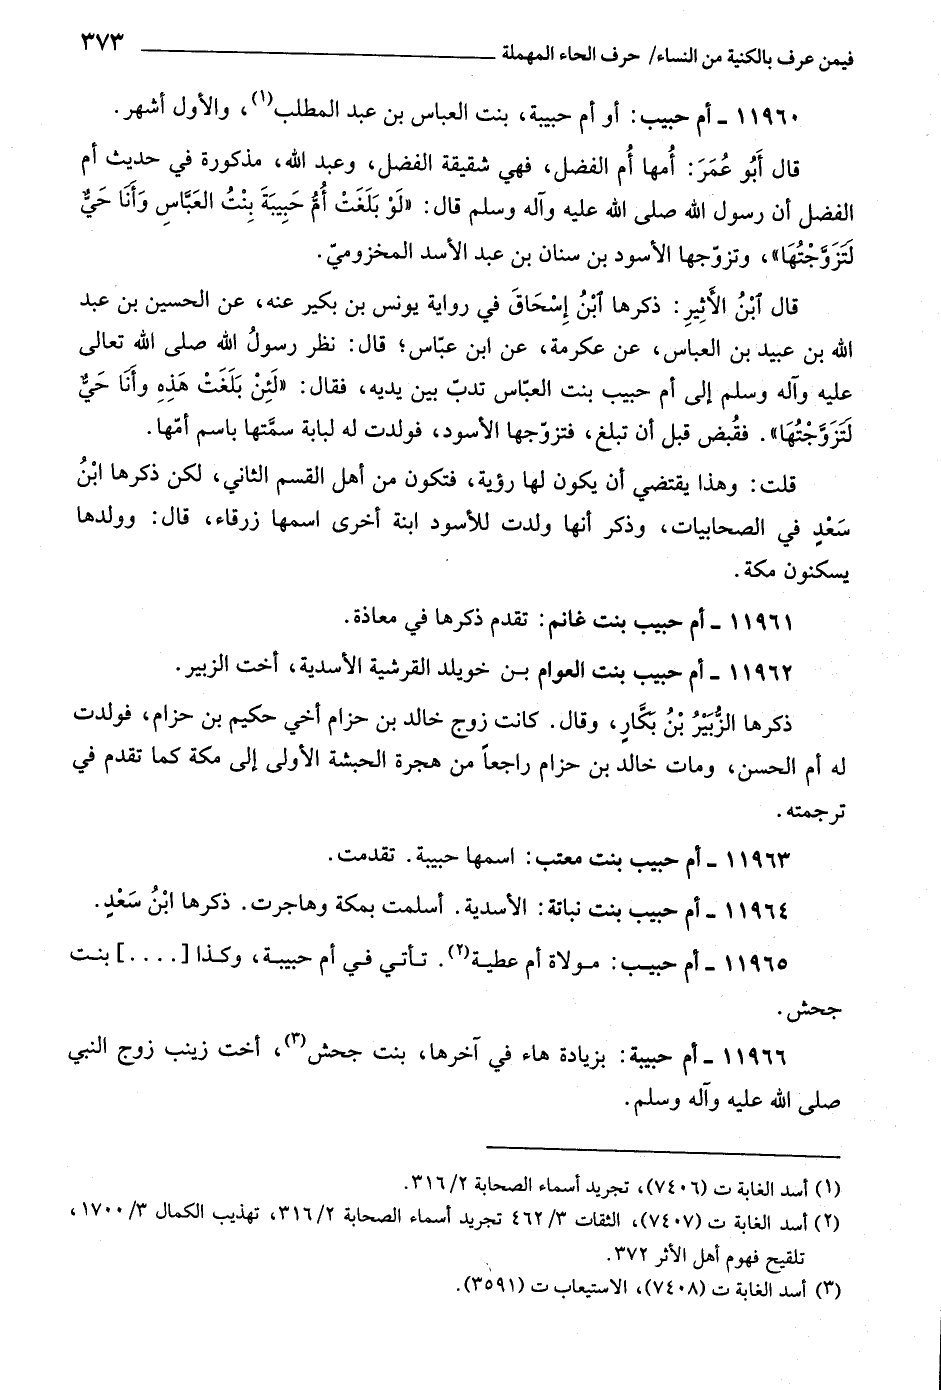 فيمن عرف بالكنية من النساء/ حرف الحاء المهملة ٣٧٣
١١٩٦٠ ـ أم حبيب: أو أم حبيبة، بنت العباس بن عبد المطلب(١)، والأول أشهر.
قال أَبُو عُمَرَ: أُمها أُم الفضل، فهي شقيقة الفضل، وعبد الله، مذكورة في حديث أم
الفضل أن رسول الله صلى الله عليه وآله وسلم قال: «لَوْ بَلَغَتْ أُمُّ حَبِيبَةَ بِنْتُ العَبَّاسِ وَأَنَا حَيٌّ
لَتَزَوَّجْتُهَا»، وتزوّجها الأسود بن سنان بن عبد الأسد المخزوميّ.
قال ٱبْنُ الأَثِيرِ: ذكرها ٱبْنُ إِسْحَاقَ في رواية يونس بن بكير عنه، عن الحسين بن عبد
الله بن عبيد بن العباس، عن عكرمة، عن ابن عبّاس؛ قال: نظر رسولُ الله صلى الله تعالى
عليه وآله وسلم إلى أم حبيب بنت العبّاس تدبّ بين يديه، فقال: «لَئِنْ بَلَغَتْ هَذِهِ وأَنَا حَيٌّ
لَتَزَوَّجْتُهَا». فقُبض قبل أن تبلغ، فتزوّجها الأسود، فولدت له لبابة سمَّتها باسم أمّها.
قلت: وهذا يقتضي أن يكون لها رؤية، فتكون من أهل القسم الثاني، لكن ذكرها ابْنُ
سَعْدٍ في الصحابيات، وذكر أنها ولدت للأسود ابنة أخرى اسمها زرقاء، قال: وولدها
يسكنون مكة.
١١٩٦١ ـ أم حبيب بنت غانم: تقدم ذكرها في معاذة.
١١٩٦٢ ـ أم حبيب بنت العوام بن خويلد القرشية الأسدية، أخت الزبير.
ذكرها الزُّبَيْرُ بْنُ بَكَّارٍ، وقال. كانت زوج خالد بن حزام أخي حكيم بن حزام، فولدت
له أم الحسن، ومات خالد بن حزام راجعاً من هجرة الحبشة الأولى إلى مكة كما تقدم في
ترجمته.
١١٩٦٣ ـ أم حبيب بنت معتب: اسمها حبيبة. تقدمت.
١١٩٦٤ ـ أم حبيب بنت نباتة: الأسدية. أسلمت بمكة وهاجرت. ذكرها ابْنُ سَعْدٍ.
١١٩٦٥ ـ أم حبيب: مولاة أم عطية(٢). تأتي في أم حبيبة، وكذا [....] بنت
جحش.
١١٩٦٦ ـ أم حبيبة: بزيادة هاء في آخرها، بنت جحش(٣)، أخت زينب زوج النبي
صلى الله عليه وآله وسلم.
(١) أسد الغابة ت (٧٤٠٦)، تجريد أسماء الصحابة ٢/ ٣١٦.
(٢) أسد الغابة ت (٧٤٠٧)، الثقات ٣/ ٤٦٢ تجريد أسماء الصحابة ٢/ ٣١٦، تهذيب الكمال ٣/ ١٧٠٠،
تلقيح فهوم أهل الأثر ٣٧٢.
(٣) أسد الغابة ت (٧٤٠٨)، الاستيعاب ت (٣٥٩١).